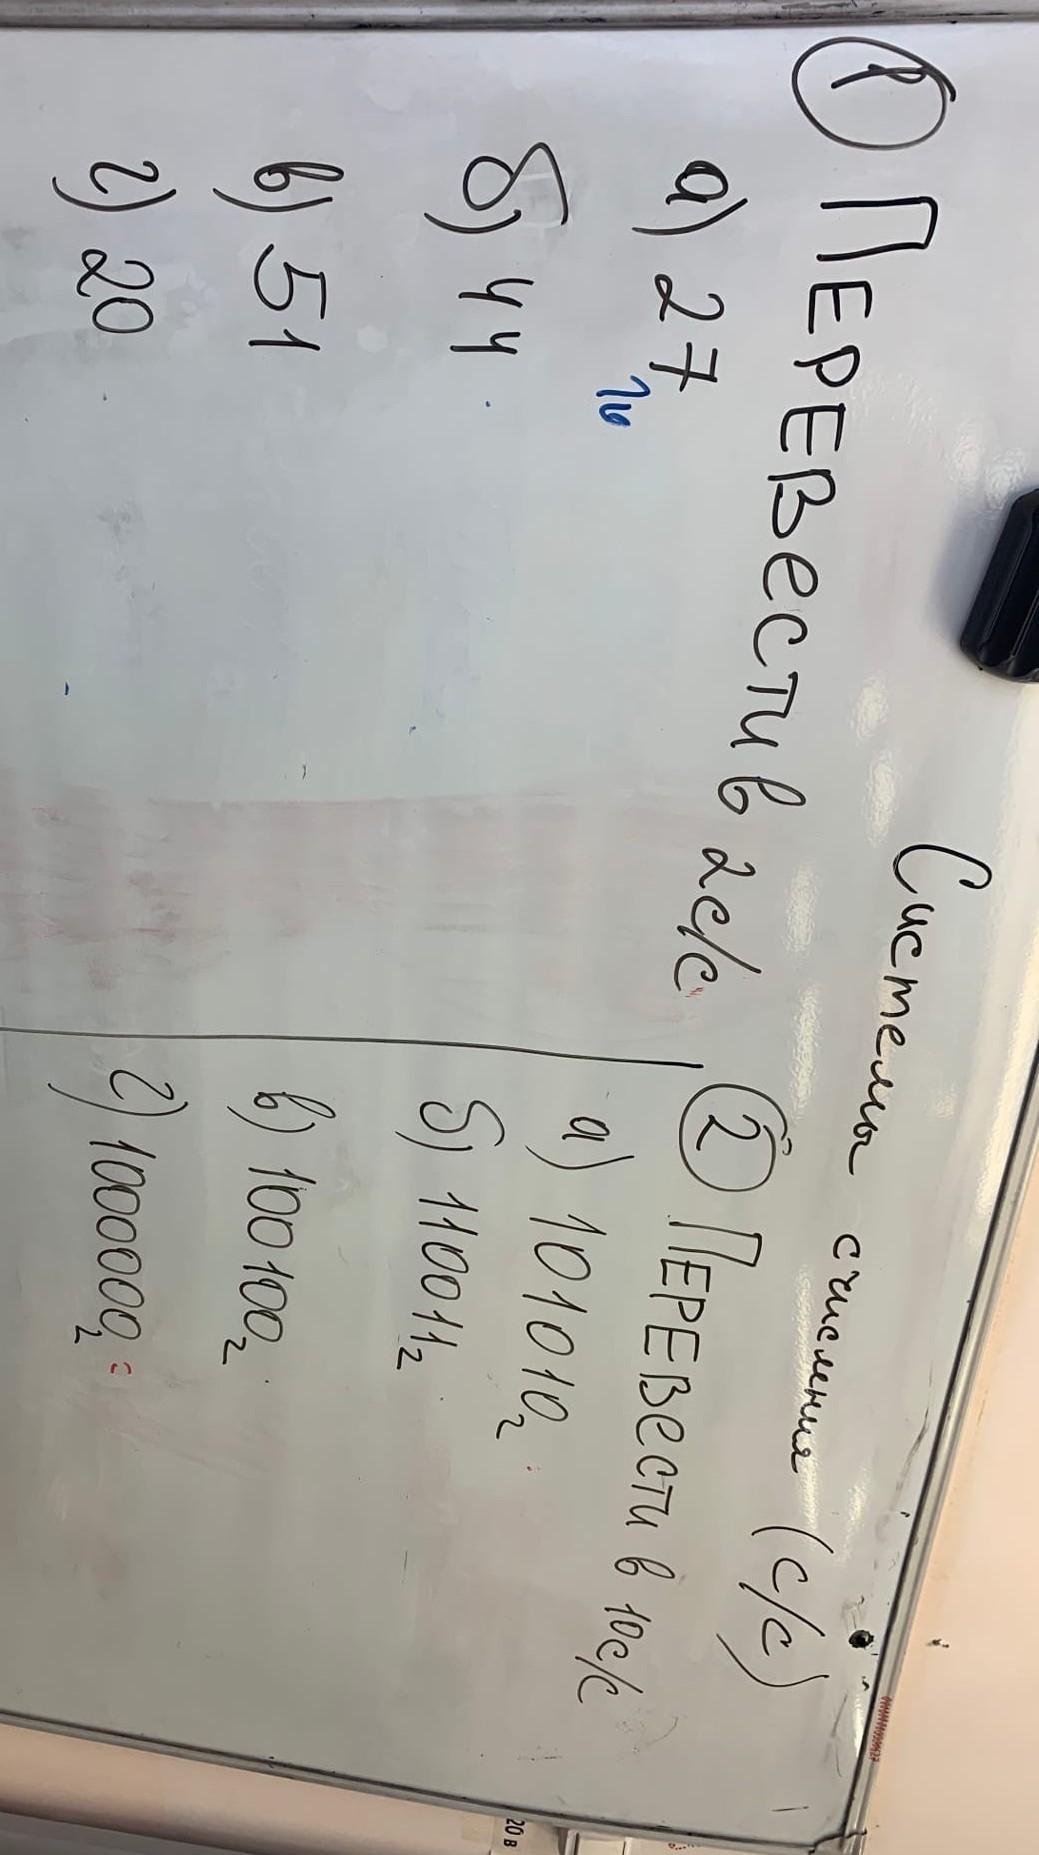 Системы счисления (с/с)
① Перевести в 2с/с
а) 27
б) 44
в) 51
г) 20
② Перевести в 10с/с
а) 101010₂
б) 110011₂
в) 100100₂
г) 1000000₂ =
20 в